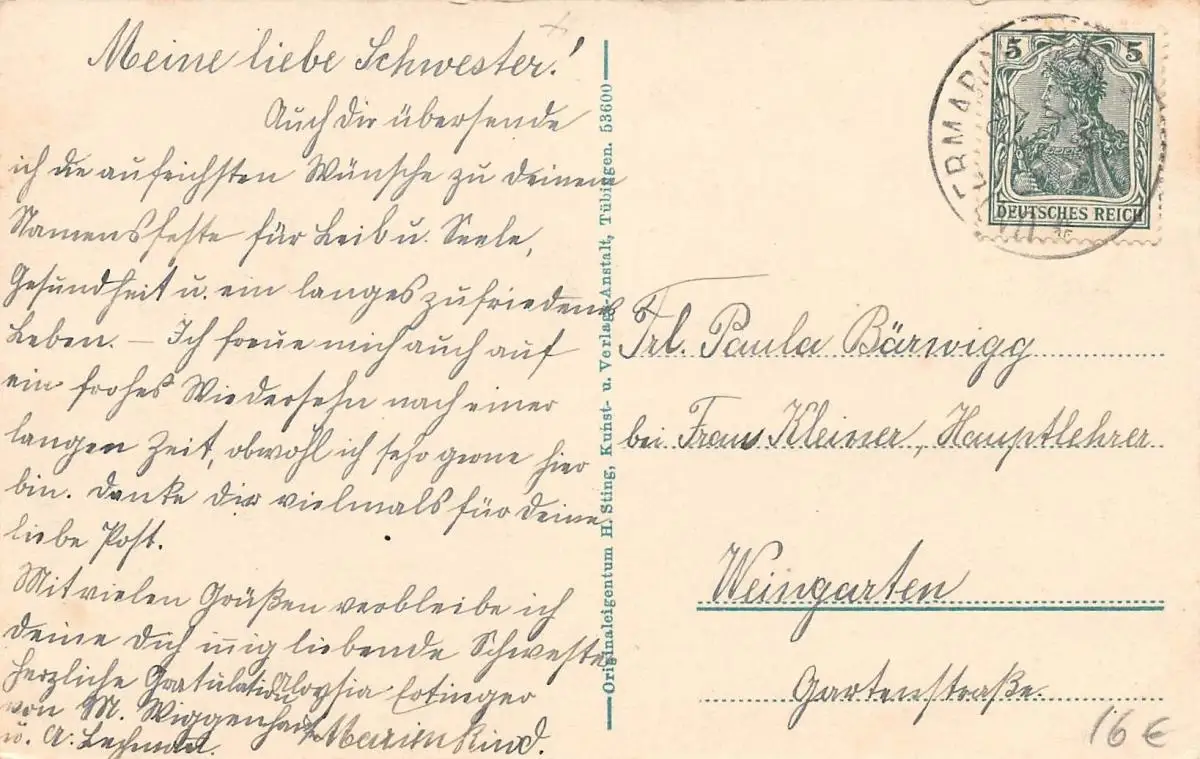 Meine liebe Schwester!
Auch dir übersende
ich die aufrichsten Wünsche zu deinem
Namensfeste für Leib u. Seele,
Gesundheit u. ein langes zufriedenes
Leben. – Ich freue mich auch auf
ein frohes Wiedersehn nach einer
langen Zeit, obwohl ich sehr gerne hier
bin. Danke dir vielmals für deine
liebe Post.
Mit vielen Grüßen verbleibe ich
deine dich innig liebende Schwester
Aloysia Ertinger
Marienkind.
herzliche Gratulation
von M. Wiggenhauser
u. A.
Originaleigentum H. Sting, Kunst- u. Verlags-Anstalt, Tübingen. 53600
5 5
DEUTSCHES REICH
Frl. Paula Bärwigg
bei Frau Kleiner, Hauptlehrer
Weingarten
Gartenstraße.
16 €